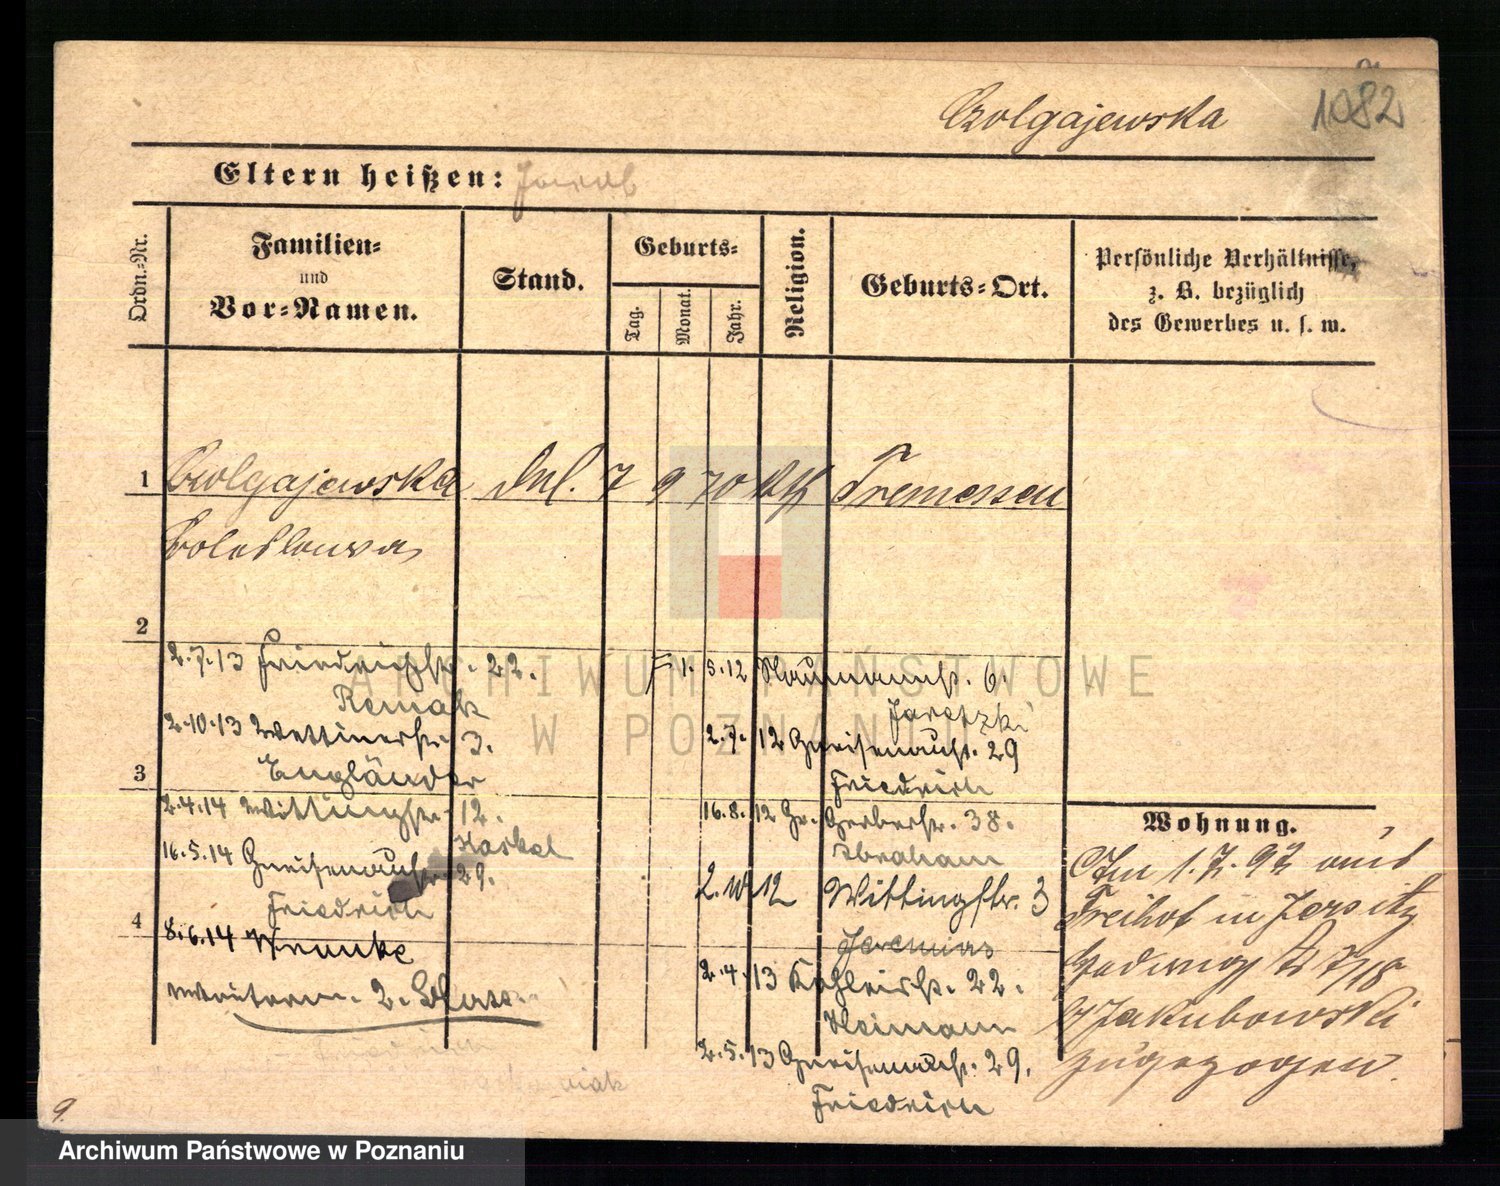 Czolgajewska
1082
Eltern heißen: Jacob
Ordn.-Nr.
Familien-
und
Vor-Namen.
Stand.
Geburts-
Tag.
Monat.
Jahr.
Religion.
Geburts-Ort.
Persönliche Verhältnisse,
z. B. bezüglich
des Gewerbes u. s. w.
1 Czolgajewska 7 9 70 kth Tremessen
Boleslawa
2
2.7.13 Friedrichstr. 22.
Remak
2.10.13 Wettinerstr. 3.
Engländer
3
2.4.14 Wittingstr. 12.
Haskel
16.5.14 Gneisenaustr. 29.
Friedrich
4
8.6.14 Wronke
weiteren 2. Blatt
1.5.12 Naumannstr. 6.
Jaretzki
2.7.12 Gneisenaustr. 29
Friedrich
16.8.12 Gr. Gerberstr. 38.
Abraham
2.10.12 Wittingstr. 3
Jeremias
2.4.13 22.
Heimann
2.5.13 Gneisenaustr. 29.
Friedrich
Wohnung.
Am 1.7.97 aus
Freihof in Jersitz
Hedwigstr 7/18
b/Jakubowski
zugezogen.
9.
ARCHIWUM PAŃSTWOWE
W POZNANIU
Archiwum Państwowe w Poznaniu